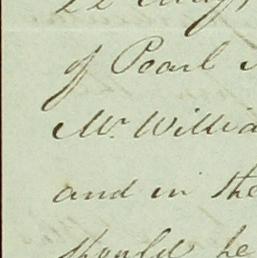 of Pearl
Mr. Willia
and in the
should be